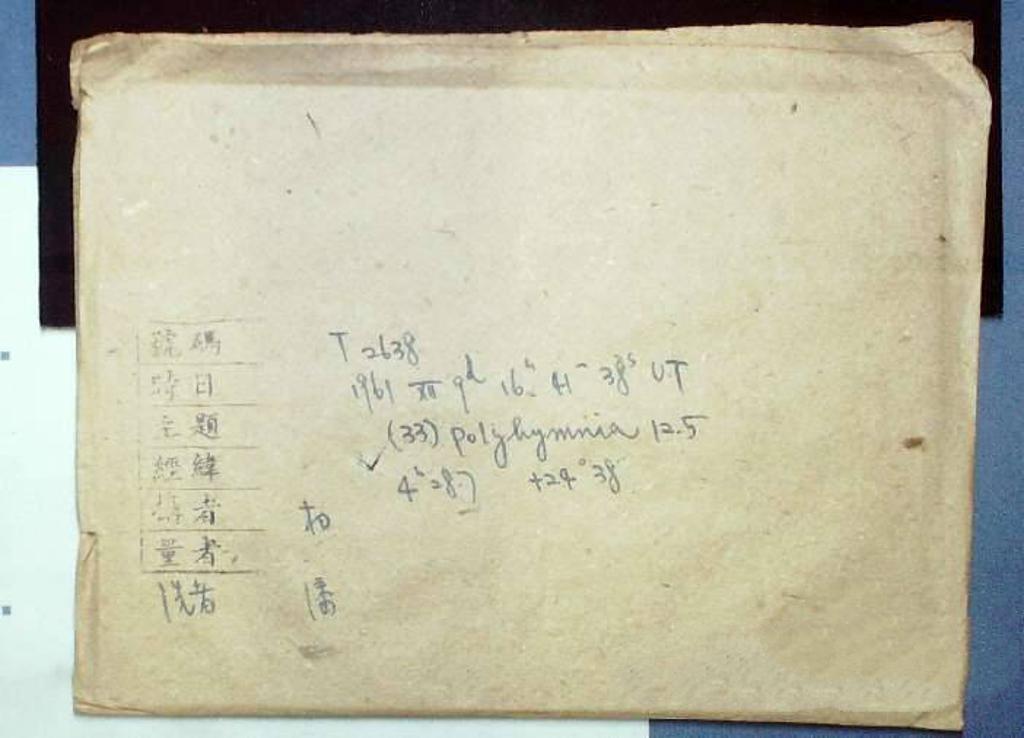 號碼 T 2638
時日 1961 XII 9d 16h 41m 38s UT
主題 (33) polyhymnia 12.5
經緯 ✓ 4h 28.7 +24° 38'
者 柏
量者
洗者 潘